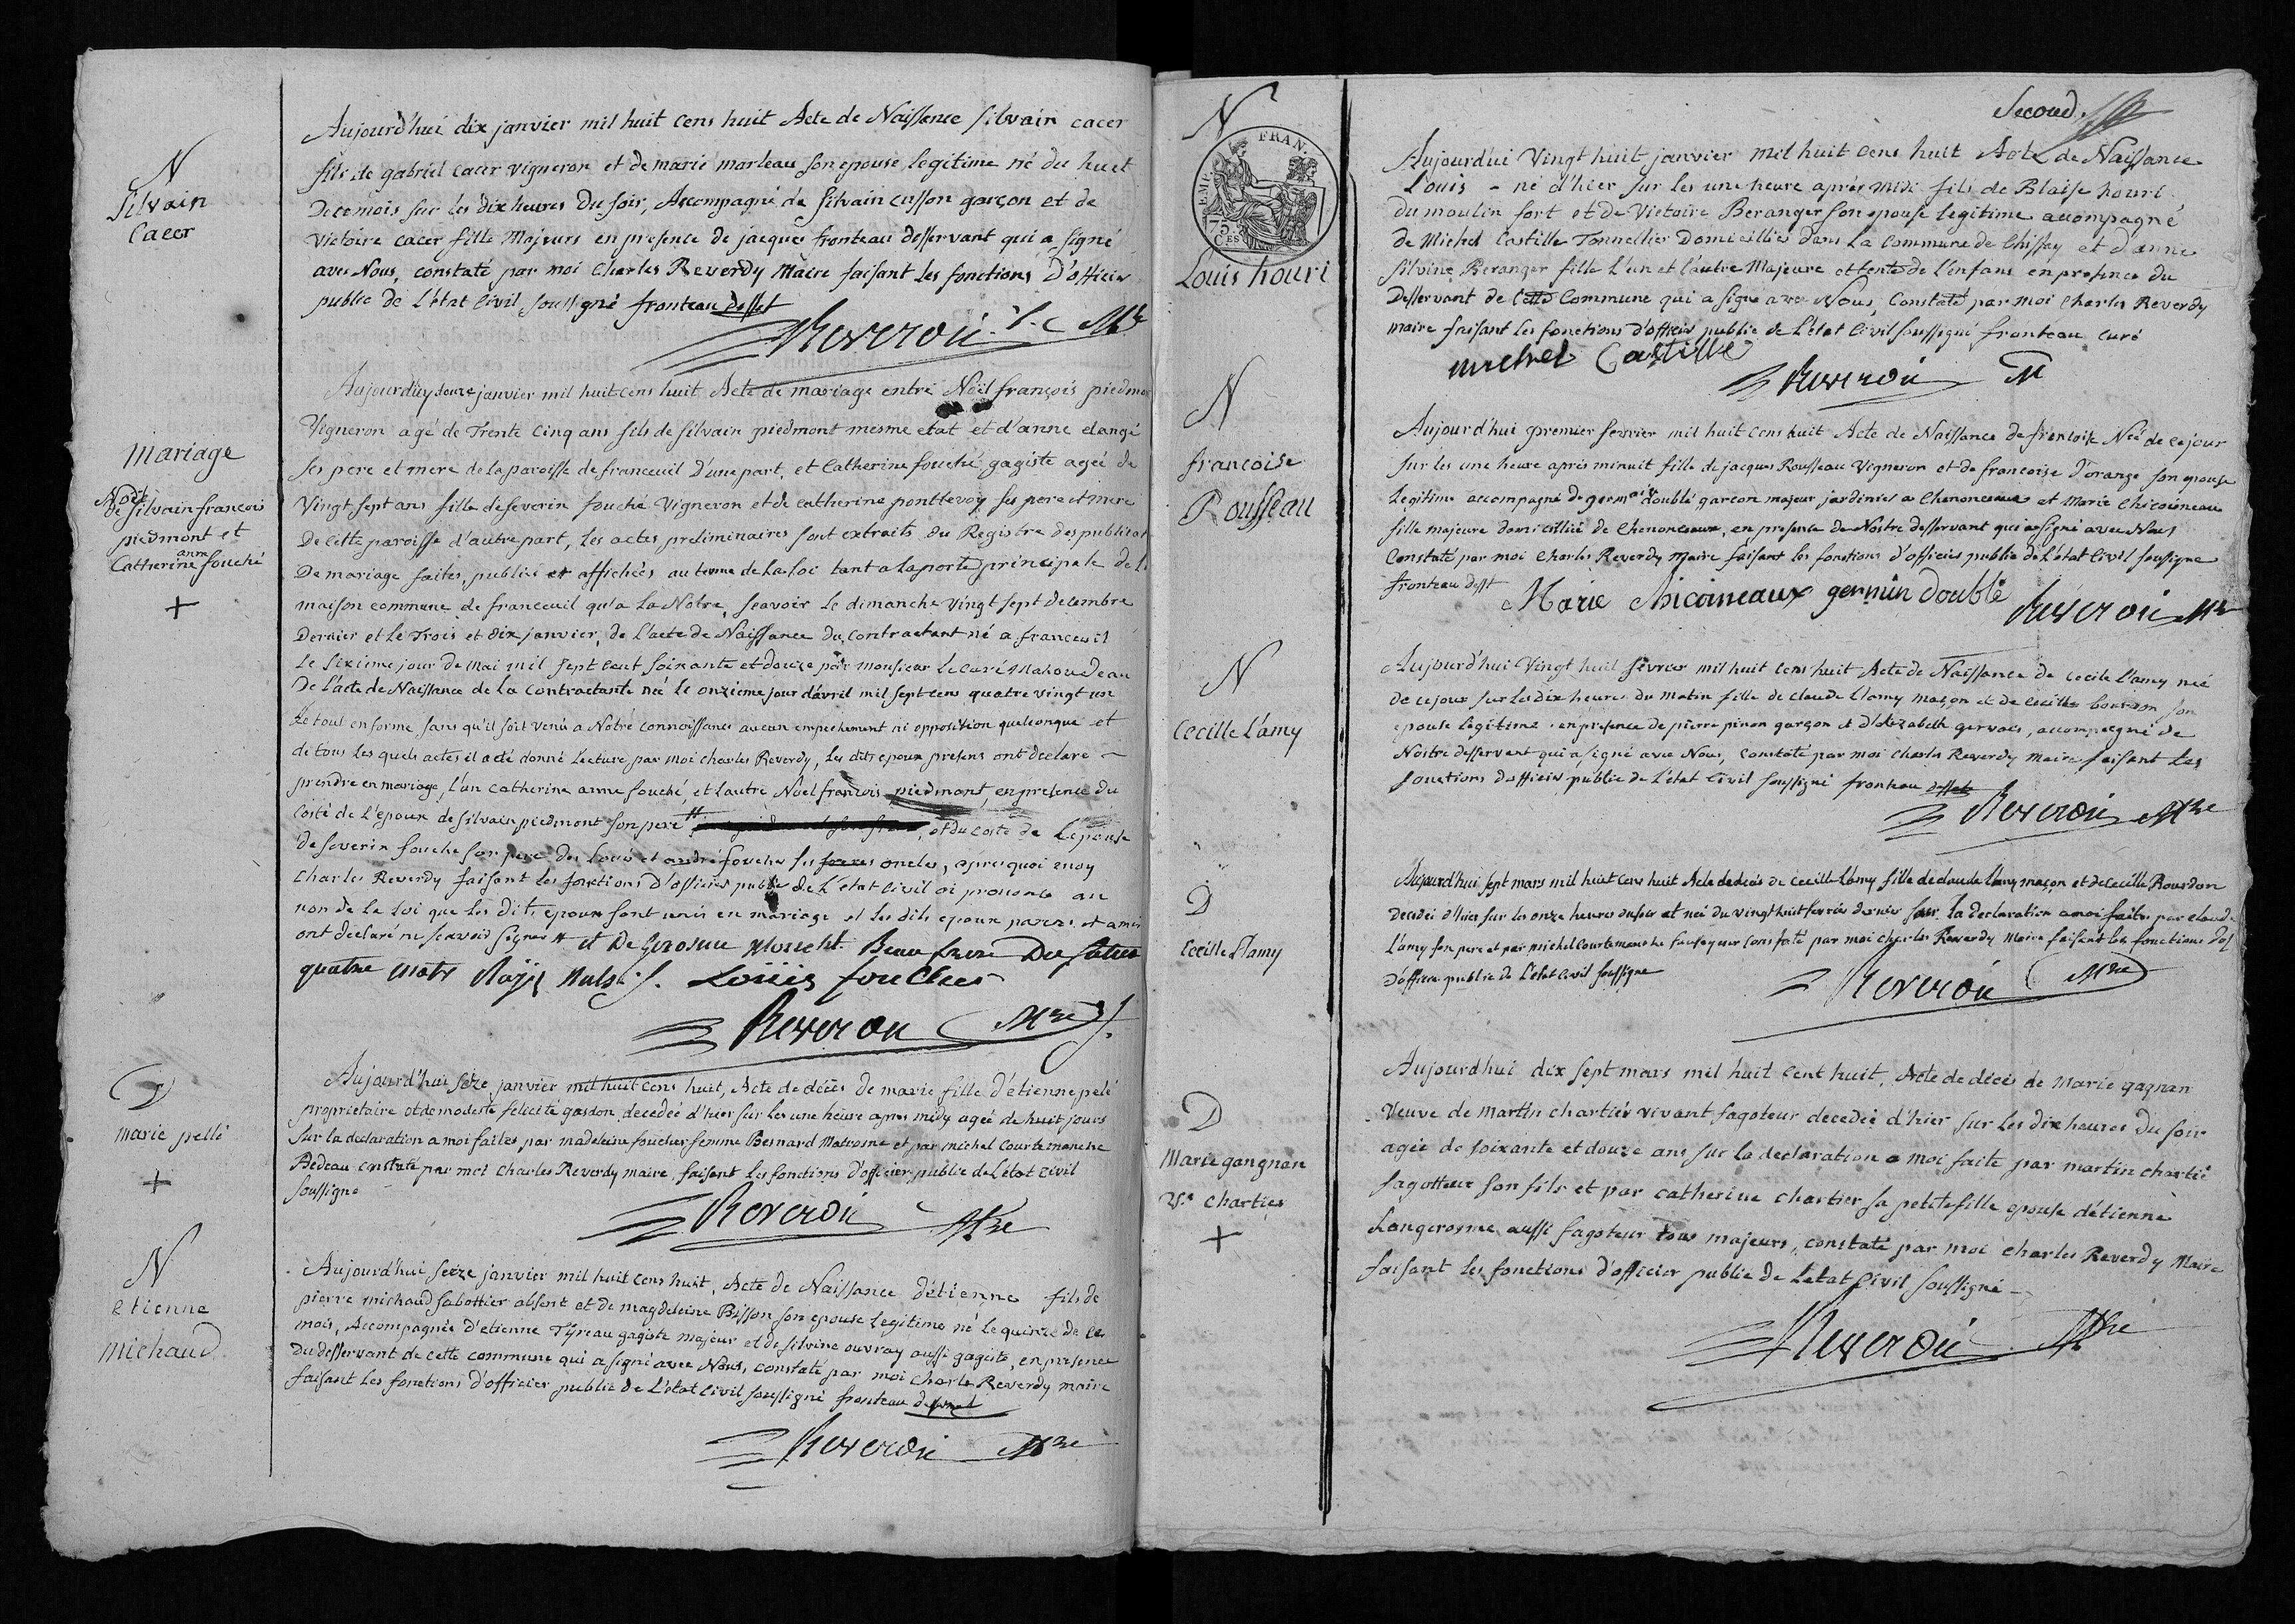 N
Silvain
Cacer
Aujourd'hui dix janvier mil huit cens huit Acte de Naissance Silvain cacer
fils de gabriel cacer vigneron et de marie marteau son epouse legitime né du huet
De ce mois sur les dix heures Du soir, Accompagné de Silvain cusson garçon et de
Victoire cacer fille Majeurs en presence de jacques fronteau desservant qui a signé
avec Nous, constaté par moi Charles Reverdy Maire faisant les fonctions D'officier
public de L'état Civil soussigné fronteau desst
Reverdi Mre
mariage
Noël
de Silvain francois
piedmont et
anne
Catherine fouché
+
Aujourd'uy douze janvier mil huit cens huit Acte de mariage entre Noël françois piedmo
Vigneron agé de Trente Cinq ans fils de Silvain piedmont mesme etat et d'anne
ses pere et mere de la paroisse de franceuil D'une part, et Catherine fouché gagiste agée de
Vingt sept ans fille de severin fouché Vigneron et de catherine ponttevoy ses pere et mere
De cette paroisse d'autre part, les actes preliminaires sont extraits du Registre des publicat
De mariage faites, publiés et affichés au terme de La Loi tant a la porte principale de l
maison commune de franceuil qu'a La Notre, scavoir le dimanche Vingt sept decembre
Dernier et Le Trois et dix janvier, de L'acte de Naissance du Contractant né a franceuil
Le sixieme jour de mai mil sept cent soixante et douze par monsieur Le curé Mahoudeau
De L'acte de Naissance de La Contractante né le onzieme jour d'avril mil sept cens quatre vingt un
Le tout en forme sans qu'il soit venu a Notre Connoissance aucun empechement ni opposition quelconque et
de tous les quels actes il a été donné Lecture par moi charles Reverdy, Les dits epoux presens ont declaré
prendre en mariage, L'un Catherine anne fouché, et l'autre Noël françois piedmont, en presence du
Costé de L'epoux de Silvain piedmont son pere et du costé de Lepouse
de severin fouche son pere des Louis et andré fouches ses freres oncles, apres quoi moy
Charles Reverdy faisant les fonctions D'officier public de L'état Civil ai prononcé au
non de la Loi que les Dits epoux sont unis en mariage et les dits epoux parens et amis
ont declaré ne scavoir signer et De Beau frere Du futur
quatre mots Rayés Nuls Loüis fouches
Reverdi Mre
D
marie pellé
+
Aujourd'hui seize janvier mil huit cens huit, Acte de décès de marie fille d'étienne pelé
proprietaire et de modeste felicité gasdon decedée d'hier sur les une heure apres midy agée de huit jours
Sur la declaration a moi faites par madeleine foucher femme Besnard et par michel Courtemanche
Bedeau constaté par moi Charles Reverdy maire, faisant les fonctions d'officier public de L'état Civil
soussigné
Reverdi Mre
N
etienne
michaud
Aujourd'hui seize janvier mil huit cens huit, Acte de Naissance d'étienne fils de
pierre michaud sabottier absent et de magdeleine Bisson son epouse Legitime né Le quinze de ce
mois, Accompagnée d'etienne gagiste majeur et de silvine ouvray aussi gagiste, en presence
du desservant de cette commune qui a signé avec Nous, constaté par moi Charles Reverdy maire
faisant les fonctions d'officier public de L'état Civil soussigné fronteau
Reverdi Mre
Second.
N
EMP. FRAN.
75 Ces
Louis houri
Aujourd'ui Vingt huit janvier mil huit cens huit Acte de Naissance
Louis - né d'hier sur les une heure après midi fils de Blaise houri
du moulin fort et de Victoire Beranger son epouse legitime accompagné
de Michel Castille Tonnellier Domicilliés dans la Commune de Chissay et d'anne
silvine Beranger fille L'un et l'autre Majeure et tente de l'enfant en presence du
Desservant de Cette Commune qui a signé avec Nous, Constaté par moi Charles Reverdy
maire faisant les fonctions d'officier public de L'état Civil soussigné fronteau curé
michel Castille
Reverdi M
N
francoise
Rousseau
Aujourd'hui premier fevrier mil huit cens huit Acte de Naissance de francoise Née de ce jour
Sur les une heure apres minuit fille de jacques Rousseau Vigneron et de francoise d'orange son epouse
Legitime accompagné de germain doublé garcon majeur jardinier a Chenonceaux et Marie Chicoineau
fille majeure domicilliée de Chenonceaux, en presence de Nostre desservant qui a signé avec Nous
Constaté par moi Charles Reverdy maire faisant les fonctions d'officier public de L'état Civil soussigné
fronteau desst
Marie Chicoineaux germin doublé
Reverdi Mre
N
Cecille L'amy
Aujourd'hui Vingt huit fevrier mil huit cens huit Acte de Naissance de cecile L'amy née
de ce jour sur les dix heures du matin fille de claude L'amy maçon et de Cecille bourdon son
epouse legitime en presence de pierre pinon garçon et d'elizabeth gervais, accompagné de
Nostre desservant qui a signé avec Nous, Constaté par moi Charles Reverdy Maire faisant Les
fonctions d'officier public de L'état Civil soussigné fronteau
Reverdi Mre
D
Cecille L'amy
Aujourd'hui sept mars mil huit cens huit Acte de décès de Cecille L'amy fille de claude L'amy maçon et de Cecille Bourdon
Decedée d'hier sur les onze heures du soir et née du vingt huit fevrier dernier sur la declaration a moi faite par claude
L'amy son pere et par michel Courtemanche constaté par moi charles Reverdy Maire faisant les fonctions d'of
d'officier public de L'état Civil soussigné
Reverdi Mre
D
Marie gangnan
Ve chartier
+
Aujourd'hui dix sept mars mil huit cent huit, Acte de décès de Marie gagnan
Veuve de Martin chartiér vivant fagoteur decedée d'hier sur les dix heures du soir
agée de soixante et douze ans sur la declaration a moi faite par martin chartié
fagotteur son fils et par catherine chartier sa petite fille epouse d'étienne
Langerosme aussi fagoteur tous majeurs, constaté par moi charles Reverdy Maire
faisant les fonctions d'officier public de L'état Civil soussigné
Reverdi Mre